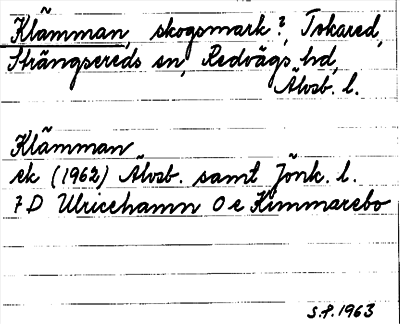 Klämman, skogsmark?, Iskared,
Strängsereds sn, Redvägs hd,
Älvsb. l.
Klämman
ek (1962) Älvsb. samt Jönk. l.
7 D Ulricehamn O e Kimmarebo
S.P. 1963